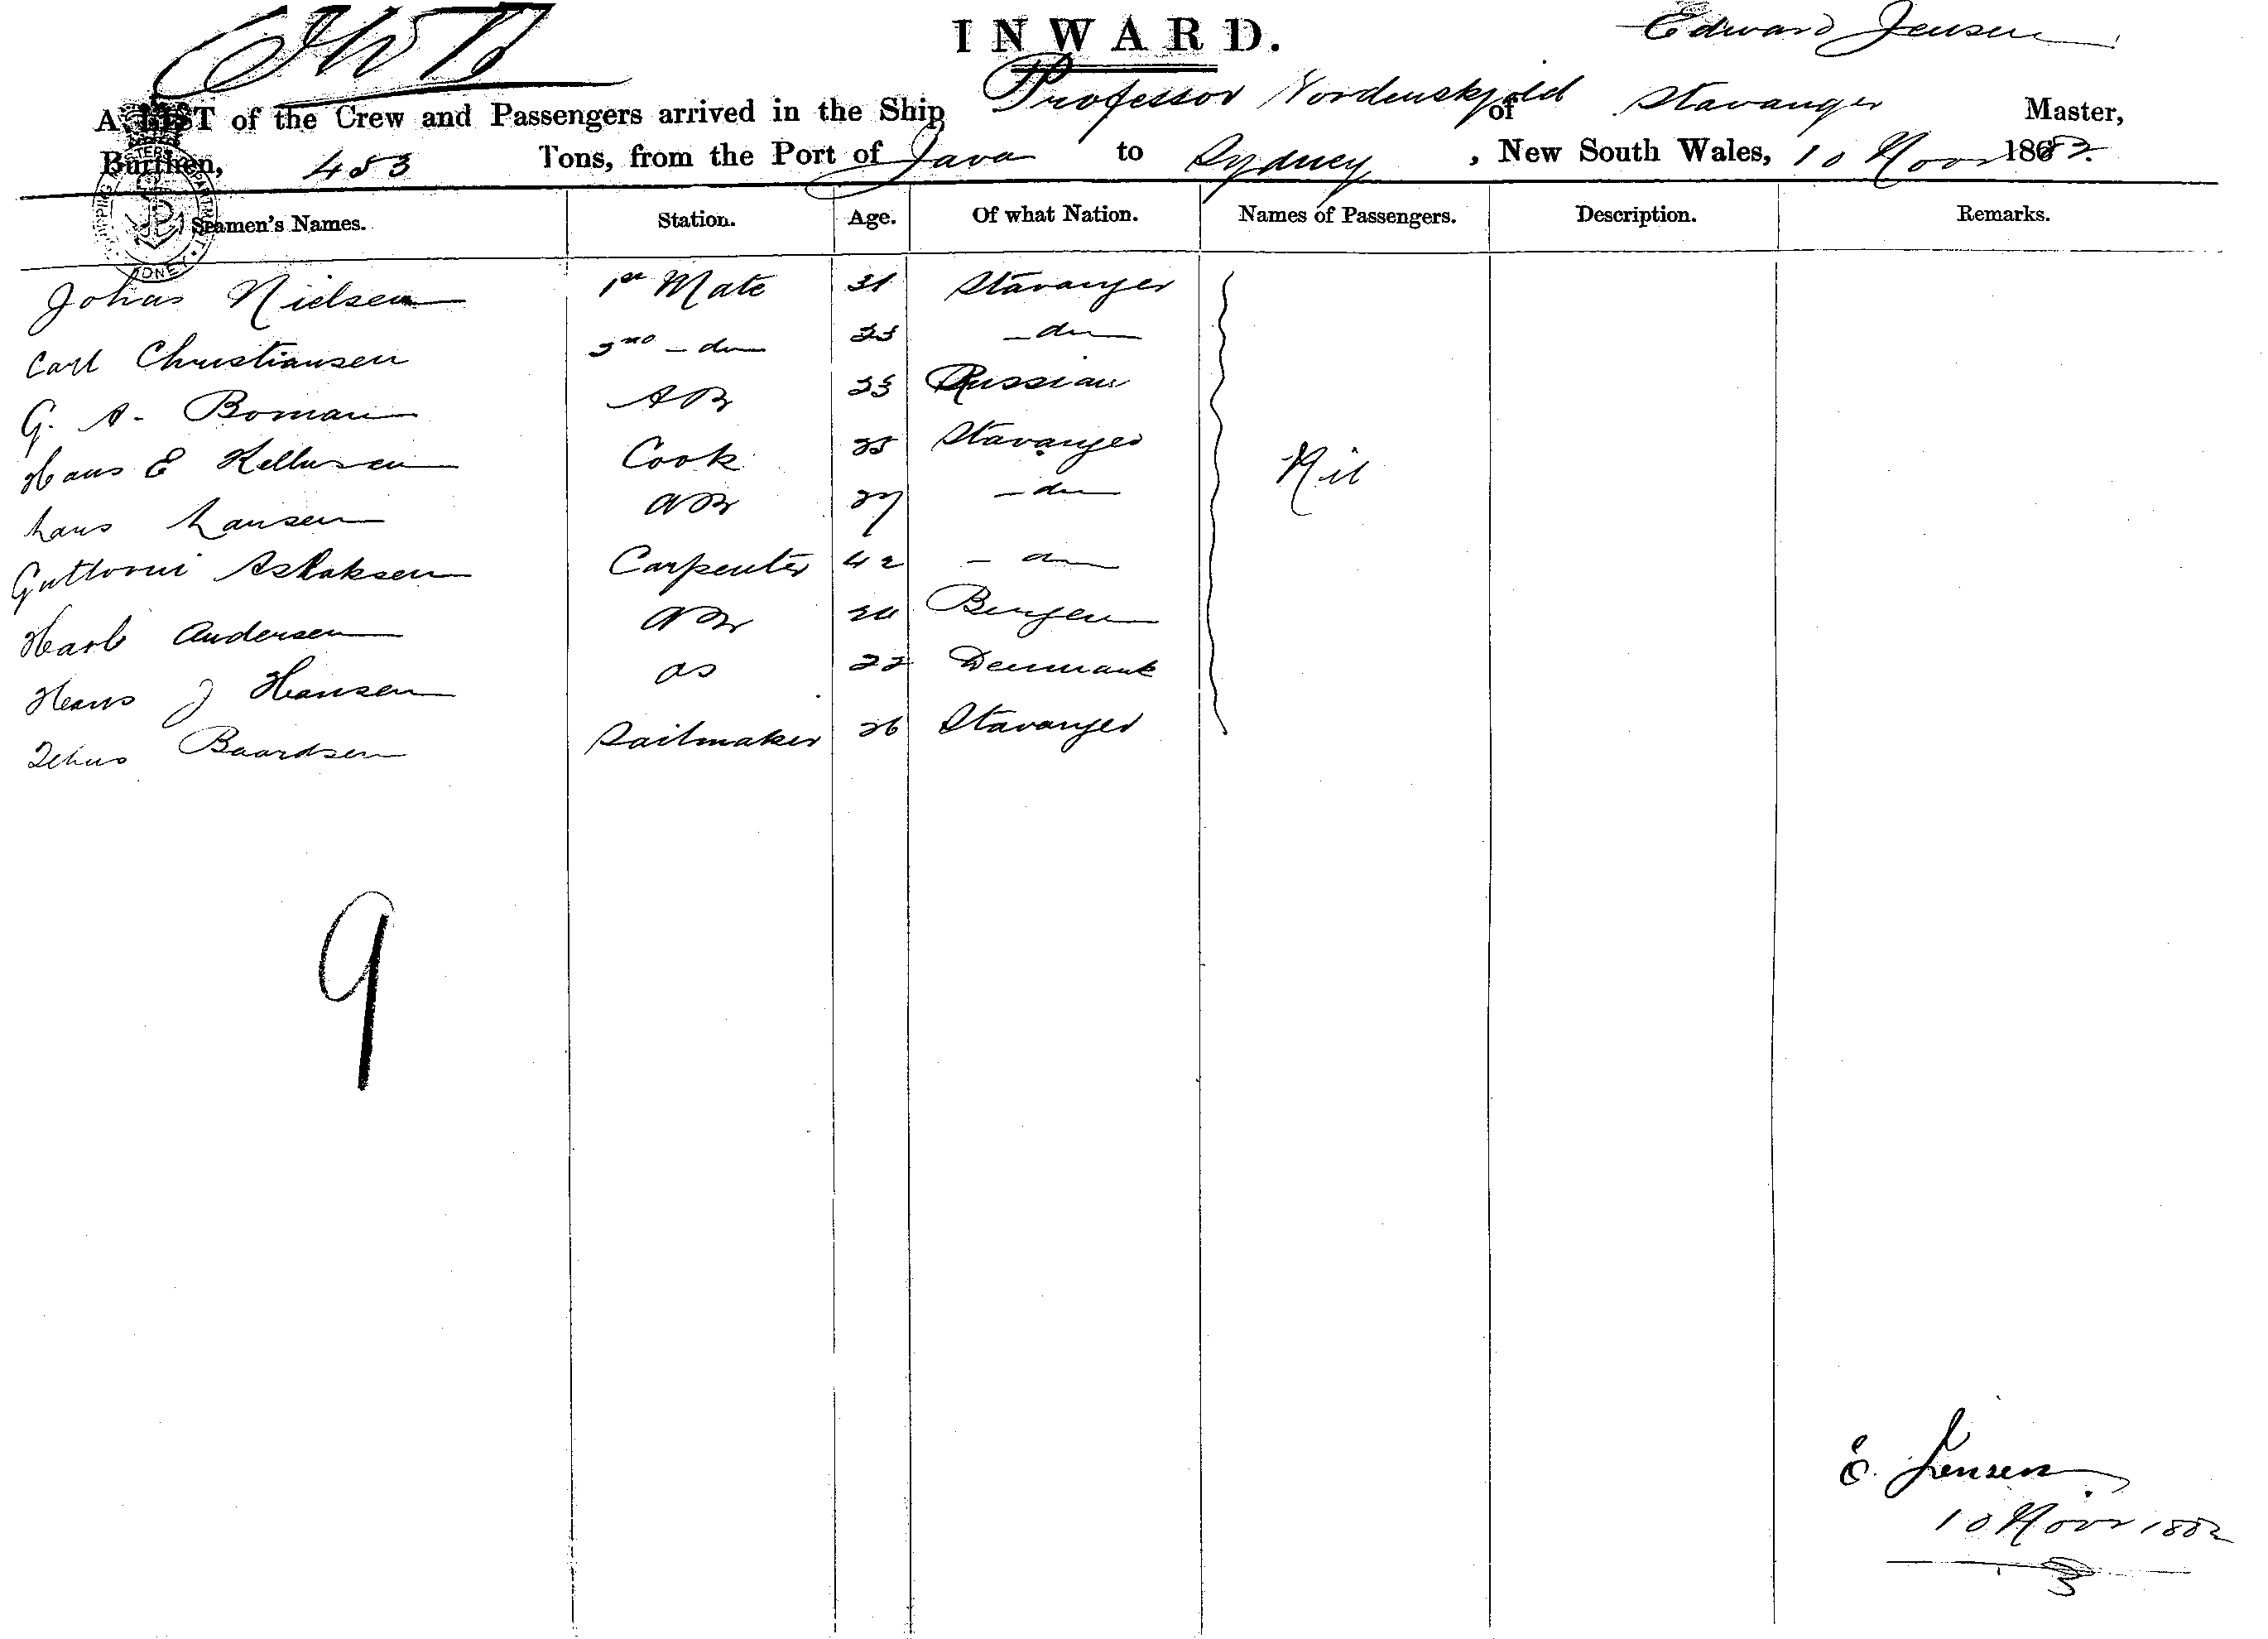 INWARD.
Edward Jensen
A LIST of the Crew and Passengers arrived in the Ship Professor Nordenskjold of Stavanger Master,
Burthen, 453 Tons, from the Port of Java to Sydney, New South Wales, 10 Novr 1882.
Seamen's Names. Station. Age. Of what Nation. Names of Passengers. Description. Remarks.
Johas Nielsen 1st Mate 31 Stavanger
Carl Christiansen 2nd - do - do
G. A. Boman AB 23 Russian
Hans E Cook 25 Stavanger
Lars Larsen AB 27 - do
Guttorm Aslaksen Carpenter 42 - do
Andersen AB Bergen
Hans J Hansen OS 22 Denmark
Baardsen Sailmaker 26 Stavanger
Nil
9
E. Jensen
10 Novr 1882